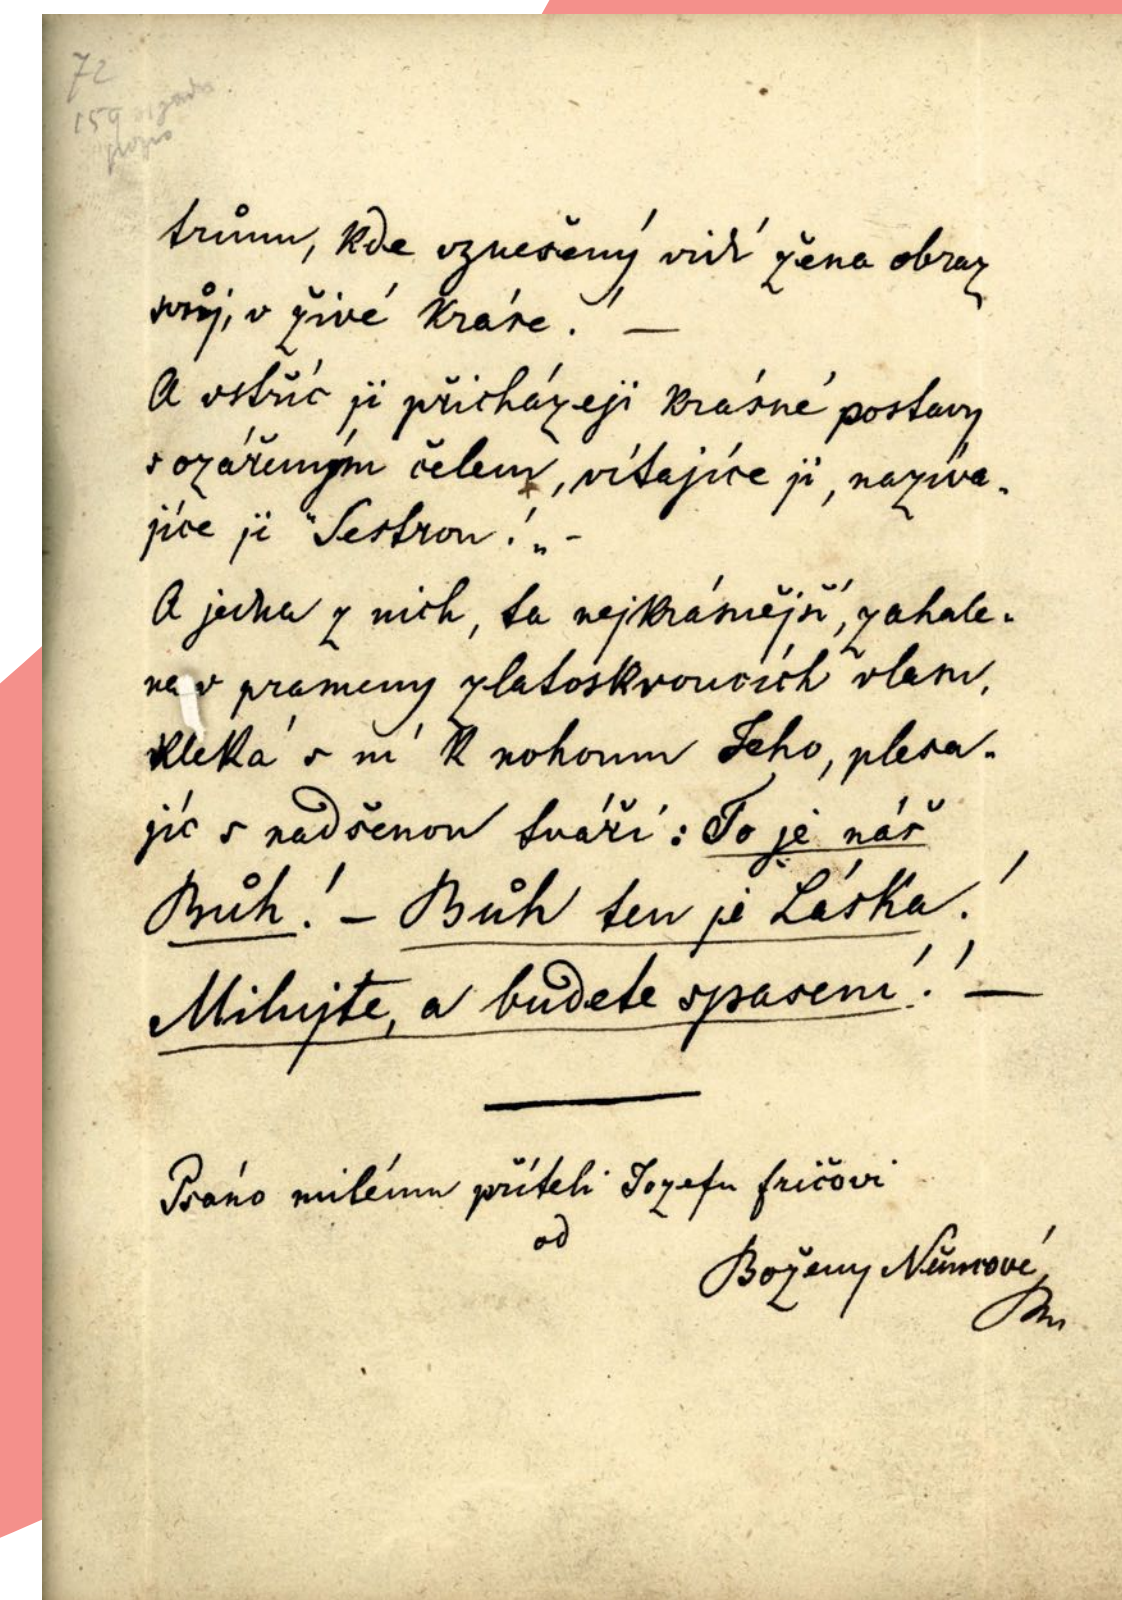 72
159
trůnu, kde vznešený vidí žena obraz
svůj, v živé kráse! —
A vstříc ji přicházeji krásné postavy
s ozářeným čelem, vítajíce ji, nazíva-
jíce ji "Sestrou!„ -
A jedna z nich, ta nejkrásnější, zahale-
na v prameny zlatoskvoucích vlasu,
kleká s ní k nohoum Jeho, plesa-
jíc s nadšenou tváří: To je náš
Bůh! — Bůh ten je Láska!
Milujte, a budete spaseni!! —
Psáno milému příteli Jozefu fričovi
od
Boženy Němcové